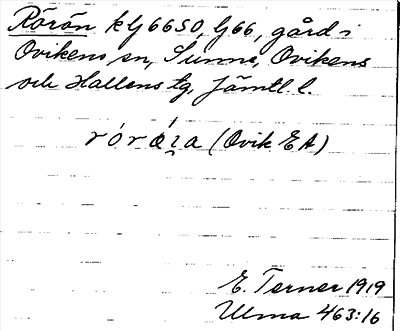 Rörön kg 66 SO, G66, gård i
Ovikens sn, Sunne, Ovikens
och Hallens tg, Jämtl. l.
(Ovik EA)
E. Terner 1919
Ulma 463:16